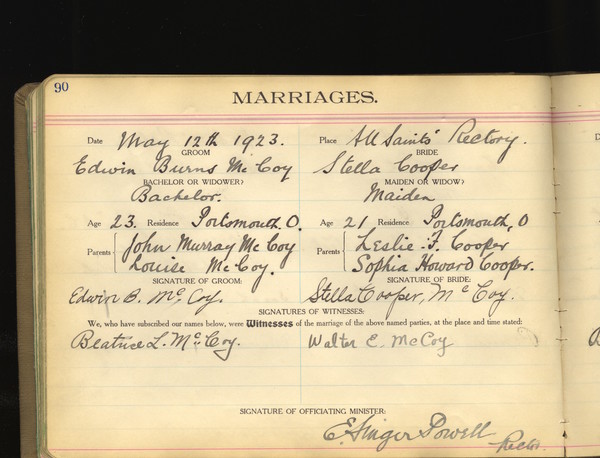 90
MARRIAGES.
Date May 12th 1923. Place All Saints' Rectory.
GROOM BRIDE
Edwin Burns McCoy Stella Cooper
BACHELOR OR WIDOWER? MAIDEN OR WIDOW?
Bachelor. Maiden
Age 23. Residence Portsmouth, O. Age 21 Residence Portsmouth, O
Parents John Murray McCoy Parents Leslie F. Cooper
Louise McCoy. Sophia Howard Cooper.
SIGNATURE OF GROOM: SIGNATURE OF BRIDE:
Edwin B. McCoy. Stella Cooper, McCoy.
SIGNATURES OF WITNESSES:
We, who have subscribed our names below, were Witnesses of the marriage of the above named parties, at the place and time stated:
Beatrice L. McCoy. Walter E. McCoy
SIGNATURE OF OFFICIATING MINISTER:
E. Singer Powell
Rector.